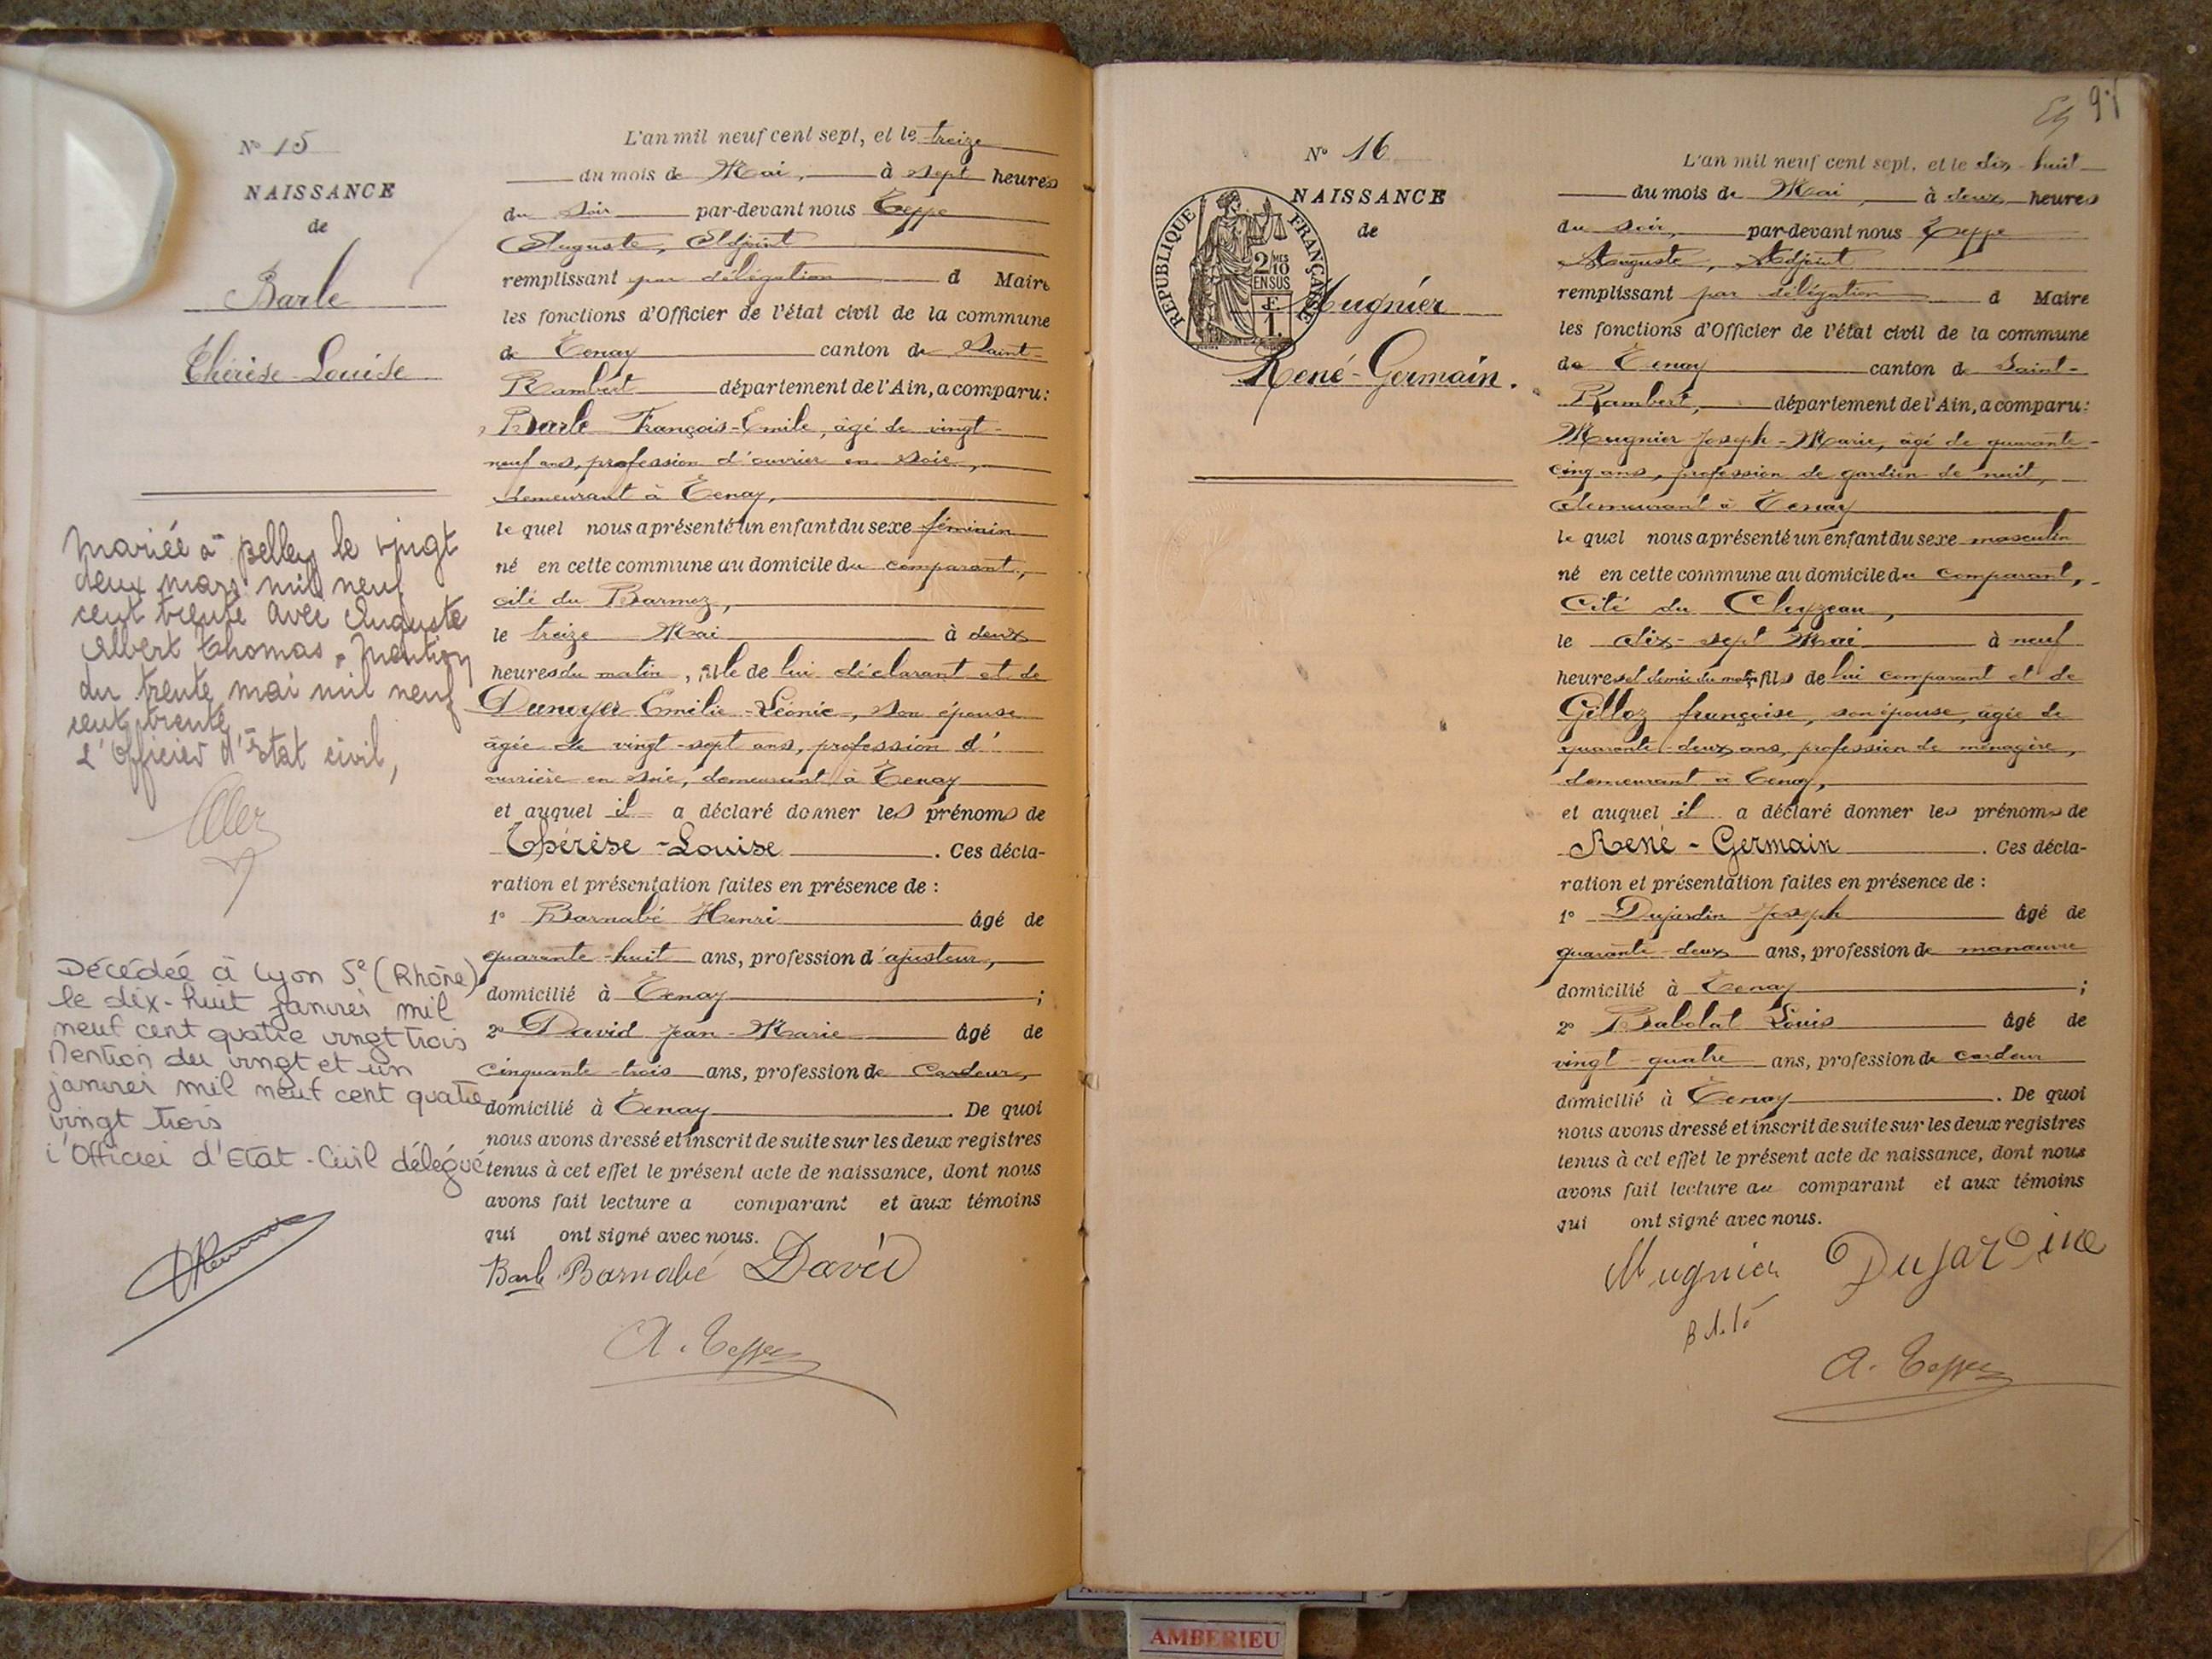 N° 15
NAISSANCE
de
Barle
Thérèse-Louise
Mariée à Belley le vingt
deux mars mil neuf
cent trente avec Auguste
Albert Thomas. Mention
du trente mai mil neuf
cent trente
L'Officier d'Etat civil,
Décédée à Lyon 5e (Rhône)
le dix-huit janvier mil
neuf cent quatre vingt trois
Mention du vingt et un
janvier mil neuf cent quatre
vingt trois
l'Officier d'Etat-Civil délégué
L'an mil neuf cent sept, et le treize
du mois de Mai, à sept heures
du soir par-devant nous Teppe
Auguste, Adjoint
remplissant par délégation d Maire
les fonctions d'Officier de l'état civil de la commune
de Tenay canton de Saint-
Rambert département de l'Ain, a comparu :
Barle François-Emile, âgé de vingt-
neuf ans, profession d'ouvrier en soie,
demeurant à Tenay,
le quel nous a présenté un enfant du sexe féminin
né en cette commune au domicile du comparant,
cité du Barmez,
le treize Mai à deux
heures du matin, fille de lui déclarant et de
Dunoyer Emilie-Léonie, son épouse
âgée de vingt-sept ans, profession d'
ouvrière en soie, demeurant à Tenay
et auquel il a déclaré donner les prénoms de
Thérèse-Louise. Ces décla-
ration et présentation faites en présence de :
1° Barnabé Henri âgé de
quarante-huit ans, profession d'ajusteur,
domicilié à Tenay ;
2° David Jean-Marie âgé de
cinquante-trois ans, profession de Cardeur,
domicilié à Tenay. De quoi
nous avons dressé et inscrit de suite sur les deux registres
tenus à cet effet le présent acte de naissance, dont nous
avons fait lecture a comparant et aux témoins
qui ont signé avec nous.
Barle Barnabé David
A. Teppe
97
N° 16
NAISSANCE
de
RÉPUBLIQUE FRANÇAISE
2 MES 10
EN SUS
1 F.
Mugnier
René-Germain.
L'an mil neuf cent sept, et le dix-huit
du mois de Mai, à deux heures
du soir, par-devant nous Teppe
Auguste, Adjoint
remplissant par délégation d Maire
les fonctions d'Officier de l'état civil de la commune
de Tenay canton de Saint-
Rambert, département de l'Ain, a comparu :
Mugnier Joseph-Marie, âgé de quarante-
cinq ans, profession de gardien de nuit,
demeurant à Tenay
le quel nous a présenté un enfant du sexe masculin
né en cette commune au domicile du comparant,
Cité du Cleyzeau,
le dix-sept Mai à neuf
heures et demie du matin, fils de lui comparant et de
Gilloz françoise, son épouse, âgée de
quarante-deux ans, profession de ménagère,
demeurant à Tenay,
et auquel il a déclaré donner les prénoms de
René-Germain. Ces décla-
ration et présentation faites en présence de :
1° Dujardin Joseph âgé de
quarante-deux ans, profession de manœuvre
domicilié à Tenay ;
2° Babolat Louis âgé de
vingt-quatre ans, profession de cardeur
domicilié à Tenay. De quoi
nous avons dressé et inscrit de suite sur les deux registres
tenus à cet effet le présent acte de naissance, dont nous
avons fait lecture au comparant et aux témoins
qui ont signé avec nous.
Mugnier Dujardine
A. Teppe
AMBERIEU